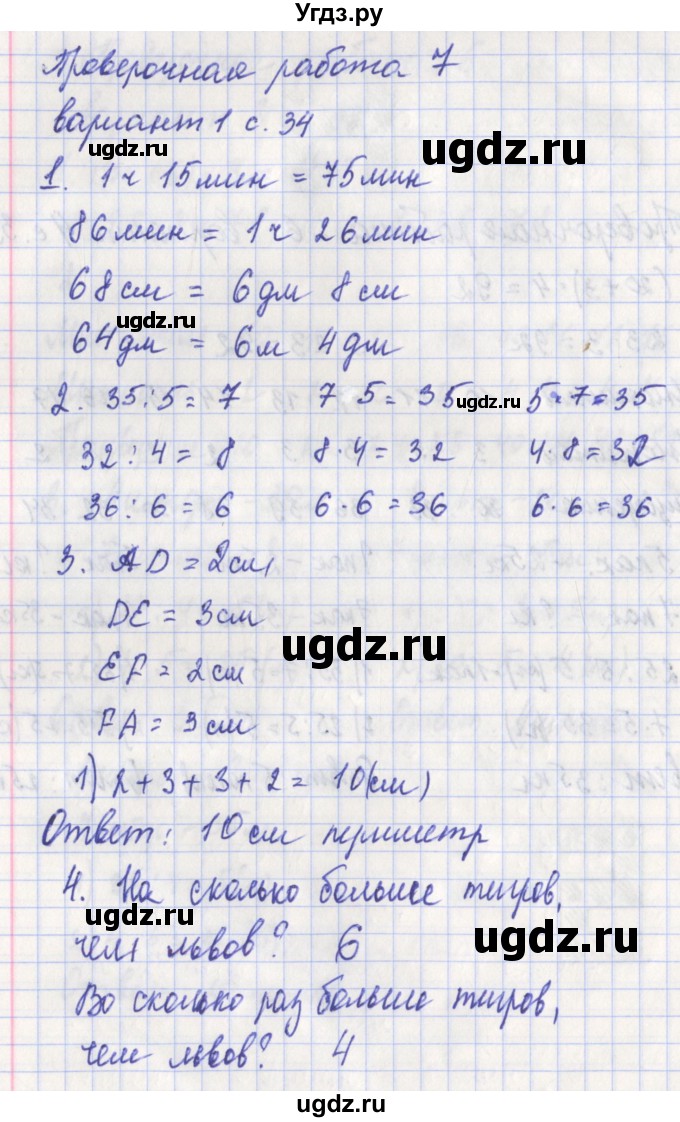 Угдз.ру
Проверочная работа 7
вариант 1 с. 34
ugdz.ru
ugdz.ru
1. 1ч 15мин = 75мин
86мин = 1ч 26мин
68см = 6дм 8см
ugdz.ru
64дм = 6м 4дм
2. 35:5=7 7·5=35 ugdz.ru 5·7=35
32:4=8 8·4=32 4·8=32
36:6=6 6·6=36 6·6=36
3. AD = 2см
DE = 3см
ugdz.ru
EF = 2см
FA = 3см
1) 2+3+3+2=10(см)
Ответ: 10см периметр
4. На сколько больше тигров,
ugdz.ru
чем львов? 6
ugdz.ru
Во сколько раз больше тигров,
чем львов? 4
ugdz.ru
ugdz.ru